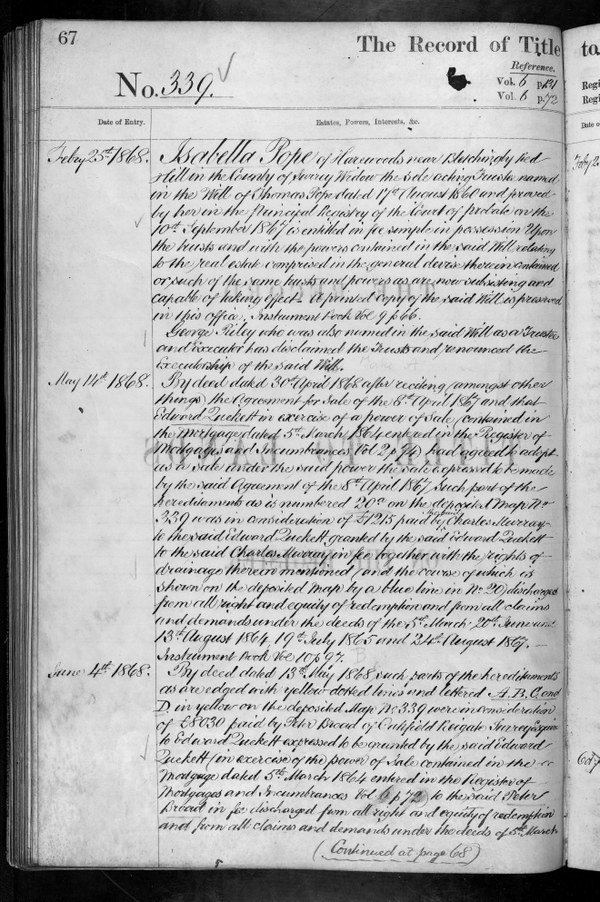 67
The Record of Title
to
Reference.
No. 339.
Vol. 6 p. 21
Vol. 6 p. 72
Regi
Regi
Date of Entry.
Estates, Powers, Interests, &c.
Date o
Feby 25th 1868.
Isabella Pope of Harewoods near Bletchingly Red
Hill in the County of Surrey Widow the sole acting Trustee named
in the Will of Thomas Pope dated 17th August 1860 and proved
by her in the Principal Registry of the Court of Probate on the
10th September 1867 is entitled in fee simple in possession Upon
the trusts and with the powers contained in the said Will relating
to the real estate comprised in the general devise therein contained
or such of the same trusts and powers as are now subsisting and
capable of taking effect. A printed copy of the said Will is preserved
in this office. Instrument Book Vol 9 p 66.
George Riley who was also named in the said Will as a Trustee
and Executor has disclaimed the Trusts and renounced the
Executorship of the said Will.
May 14th 1868.
By deed dated 30th April 1868 after reciting (amongst other
things) the Agreement for Sale of the 8th April 1867 and that
Edward Duckett in exercise of a power of sale (contained in
the mortgage dated 5th March 1864 entered in the Register of
Mortgages and Incumbrances Vol 2 p 74) had agreed to adopt
as a sale under the said power the sale expressed to be made
by the said Agreement of the 8th April 1867 Such part of the
hereditaments as is numbered 20a on the deposited Map No
339 was in consideration of £1215 paid by Charles Murray
to the said Edward Duckett granted by the said Edward Duckett
to the said Charles Murray in fee together with the rights of
drainage therein mentioned (and the course of which is
shown on the deposited map by a blue line in No 20) discharged
from all right and equity of redemption and from all claims
and demands under the deeds of the 5th March 20th June and
13th August 1864, 19th July 1865 and 24th August 1867.
Instrument Book Vol 10 p 97.
June 4th 1868.
By deed dated 13th May 1868 such parts of the hereditaments
as are edged with yellow dotted lines and lettered A, B, C, and
D, in yellow on the deposited Map No 339 were in consideration
of £8030 paid by Peter Broad of Reigate Surrey Esquire
to Edward Duckett expressed to be granted by the said Edward
Duckett (in exercise of the power of sale contained in the
mortgage dated 5th March 1864 entered in the Register of
Mortgages and Incumbrances Vol 6 p 72) to the said Peter
Broad in fee discharged from all right and equity of redemption
and from all claims and demands under the deeds of 5th March
(Continued at page 68)